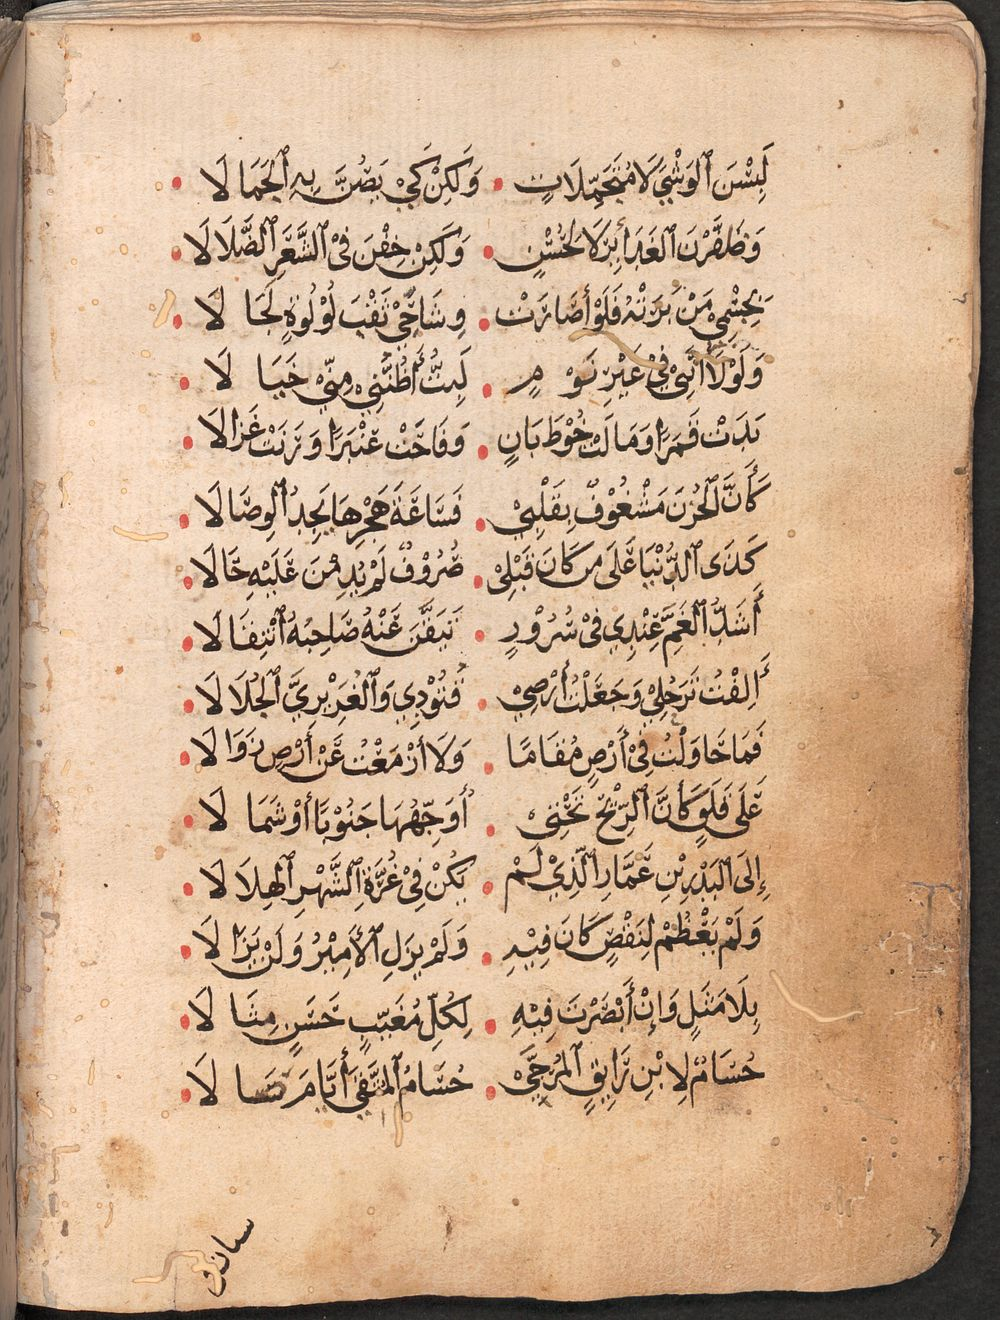 لَبِسْنَ ٱلوَشْيَ لَا مُتَجَمِّلَاتٍ • وَلَكِنْ كَيْ يَصُنَّ بِهِ ٱلْجَمَالَا •
وَظَفَّرْنَ ٱلغَدَائِرَ لَا لِحُسْنٍ • وَلَكِنْ خِفْنَ فِي ٱلشَّعَرِ ٱلضَّلَالَا •
بِجِسْمِي مَنْ بَرَتْهُ فَلَوْ أَصَارَتْ • وِشَاحِي ثَقْبَ لُؤْلُوةٍ لَجَالَا •
وَلَوْلَا أَنَّنِي فِي غَيْرِ نَوْمٍ • لَبِتُّ أَظُنُّنِي مِنِّي خَيَالَا •
بَدَتْ قَمَرًا وَمَالَتْ خُوْطَ بَانٍ • وَفَاحَتْ عَنْبَرًا وَرَنَتْ غَزَالَا •
كَأَنَّ ٱلحُزْنَ مَشْغُوْفٌ بِقَلْبِي • فَسَاعَةَ هَجْرِهَا يَجِدُ ٱلوِصَالَا •
كَذَى ٱلدُّنْيَا عَلَى مَن كَانَ قَبْلِي • صُرُوْفٌ لَمْ يُدِمْنَ عَلَيْهِ حَالَا •
أَشَدُّ ٱلغَمِّ عِنْدِي فِي سُرُوْرٍ • تَيَقَّنَ عَنْهُ صَاحِبُهُ ٱنْتِقَالَا •
أَلِفْتُ تَرَحُّلِي وَجَعَلْتُ أَرْضِي • قُتُوْدِي وَٱلغُرَيْرِيَّ ٱلجُلَالَا •
فَمَا حَاوَلْتُ فِي أَرْضٍ مُقَامًا • وَلَا أَزْمَعْتُ عَنْ أَرْضٍ زَوَالَا •
عَلَى قَلَقٍ كَأَنَّ ٱلرِّيْحَ تَحْتِي • أُوَجِّهُهَا جَنُوْبًا أَوْ شَمَالَا •
إِلَى ٱلبَدْرِ بْنِ عَمَّارِ ٱلَّذِي لَمْ • يَكُنْ فِي غُرَّةِ ٱلشَّهْرِ ٱلهِلَالَا •
وَلَمْ يَعْظُمْ لِنَقْصٍ كَانَ فِيْهِ • وَلَمْ يَزَلِ ٱلأَمِيْرُ وَلَنْ يَزَالَا •
بِلَا مَثَلٍ وَإِنْ أَبْصَرْتَ فِيْهِ • لِكُلِّ مُغَيَّبٍ حَسَنٍ مِثَالَا •
حُسَامٌ لِابْنِ رَايِقٍ ٱلمُرَجَّى • حُسَامُ ٱلمُتَّقِي أَيَّامَ صَالَا •